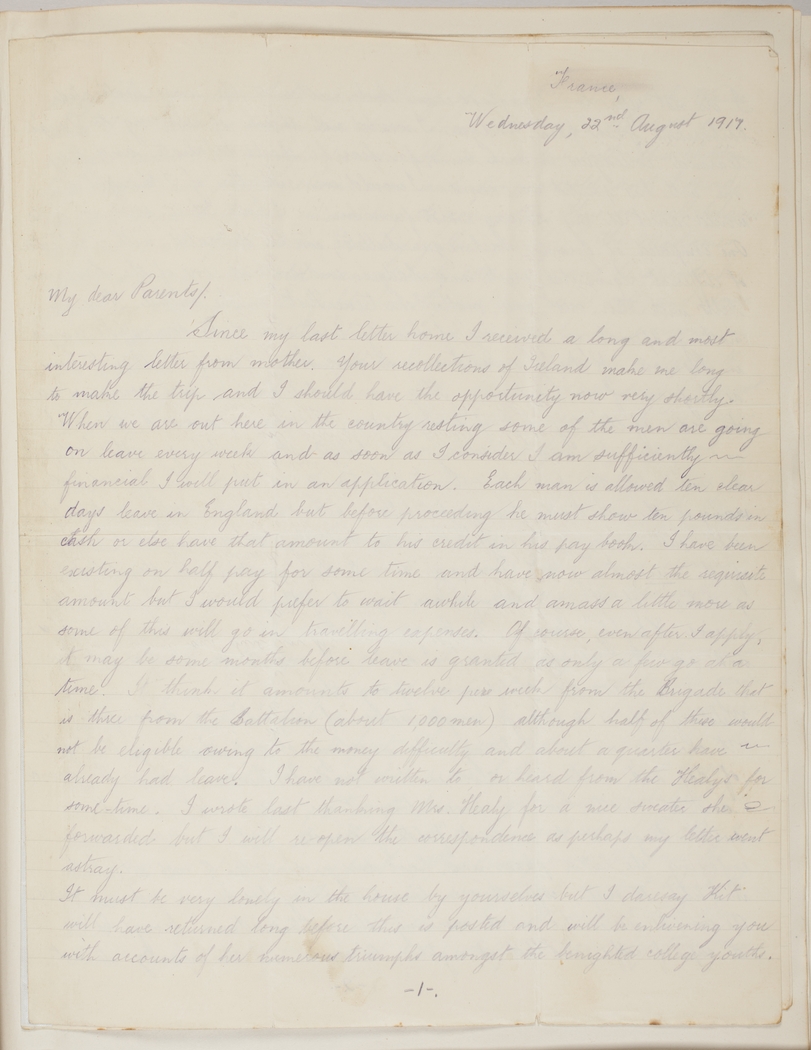 France,
Wednesday, 22nd August 1917.
My dear Parents/.
Since my last letter home I received a long and most
interesting letter from mother. Your recollections of Ireland make me long
to make the trip and I should have the opportunity now very shortly.
When we are out here in the country resting some of the men are going
on leave every week and as soon as I consider I am sufficiently ~
financial I will put in an application. Each man is allowed ten clear
days leave in England but before proceeding he must show ten pounds in
cash or else have that amount to his credit in his pay book. I have been
existing on half pay for some time and have now almost the requisite
amount but I would prefer to wait awhile and amass a little more as
some of this will go in travelling expenses. Of course, even after I apply,
it may be some months before leave is granted as only a few go at a
time. I think it amounts to twelve per week from the Brigade that
is three from the Battalion (about 1,000 men) although half of these would
not be eligible owing to the money difficulty and about a quarter have ~
already had leave. I have not written to or heard from the Healys for
some-time. I wrote last thanking Mrs. Healy for a nice sweater she
forwarded but I will re-open the correspondence as perhaps my letter went
astray.
It must be very lonely in the house by yourselves but I daresay
will have returned long before this is posted and will be enlivening you
with accounts of her numerous triumphs amongst the benighted college youths.
-1-.